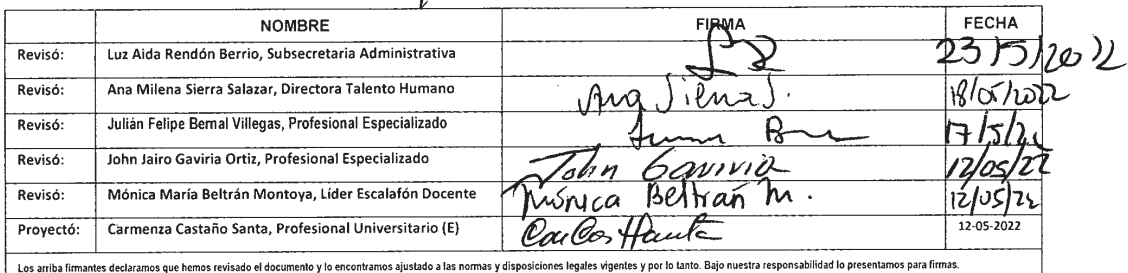 NOMBRE FIRMA FECHA
Revisó: Luz Aida Rendón Berrio, Subsecretaria Administrativa 23/5/2022
Revisó: Ana Milena Sierra Salazar, Directora Talento Humano Ana Sierra S. 18/05/2022
Revisó: Julián Felipe Bernal Villegas, Profesional Especializado 17/5/22
Revisó: John Jairo Gaviria Ortiz, Profesional Especializado John Gaviria 12/05/22
Revisó: Mónica María Beltrán Montoya, Líder Escalafón Docente Mónica Beltrán M. 12/05/22
Proyectó: Carmenza Castaño Santa, Profesional Universitario (E) 12-05-2022
Los arriba firmantes declaramos que hemos revisado el documento y lo encontramos ajustado a las normas y disposiciones legales vigentes y por lo tanto. Bajo nuestra responsabilidad lo presentamos para firmas.